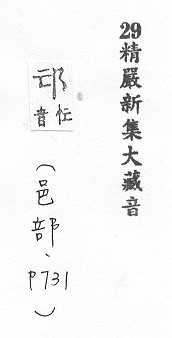 29精嚴新集大藏音
邧
音仁
（邑部、P731）